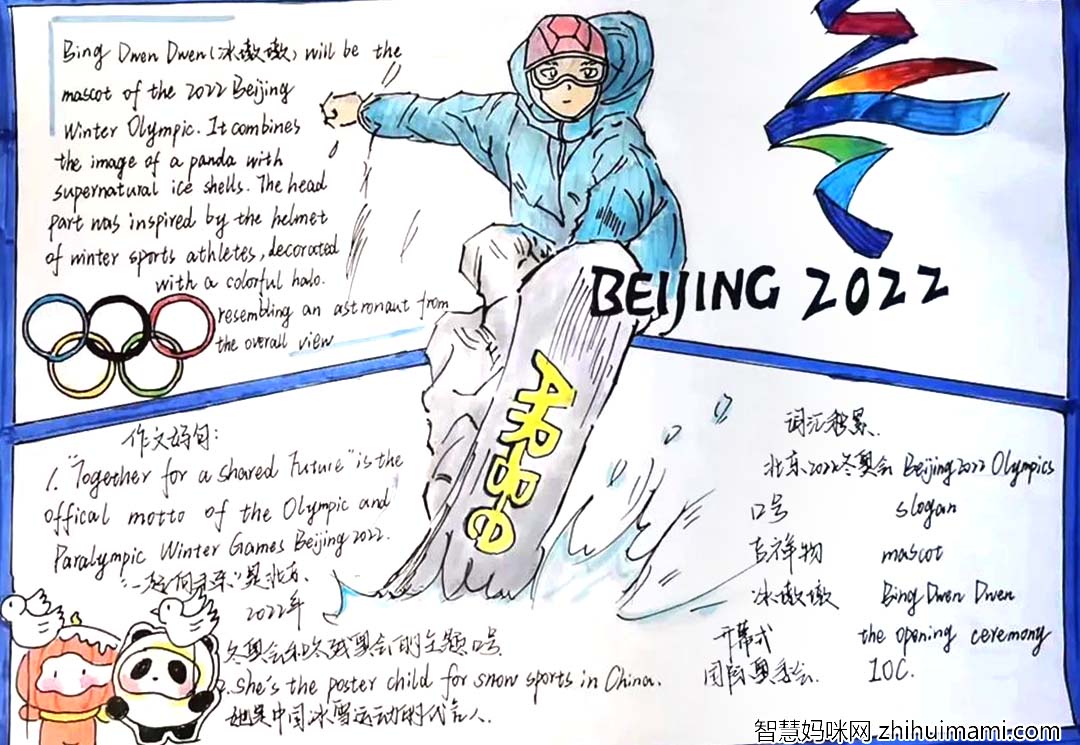 Bing Dwen Dwen(冰墩墩) will be the
mascot of the 2022 Beijing
Winter Olympic. It combines
the image of a panda with
supernatural ice shells. The head
part was inspired by the helmet
of winter sports athletes, decorated
with a colorful halo.
resembling an astronaut from
the overall view
BEIJING 2022
作文好句:
1. "Together for a shared Future" is the
offical motto of the Olympic and
Paralympic Winter Games Beijing 2022.
"一起向未来"是北京
2022年
冬奥会和冬残奥会的主题口号
2. She's the poster child for snow sports in China.
她是中国冰雪运动的代言人.
词汇积累.
北京2022冬奥会 Beijing 2022 Olympics
口号 slogan
吉祥物 mascot
冰墩墩 Bing Dwen Dwen
开幕式 the opening ceremony
国际奥委会. IOC.
智慧妈咪网 zhihuimami.com